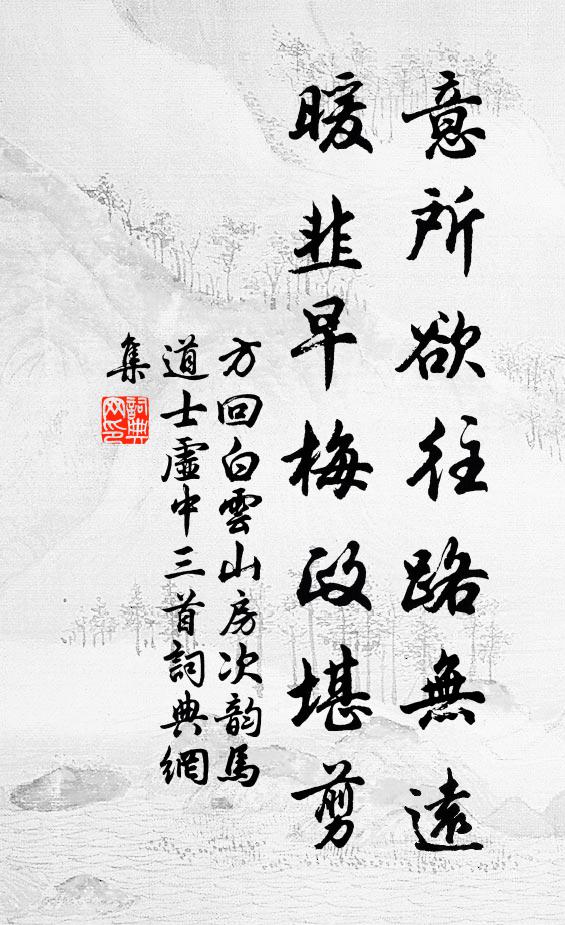 意所欲往路無遠
暖韭早梅政堪剪
方回白雲山房次韵馬
道士虛中三首詞典網
集
詞典
网印